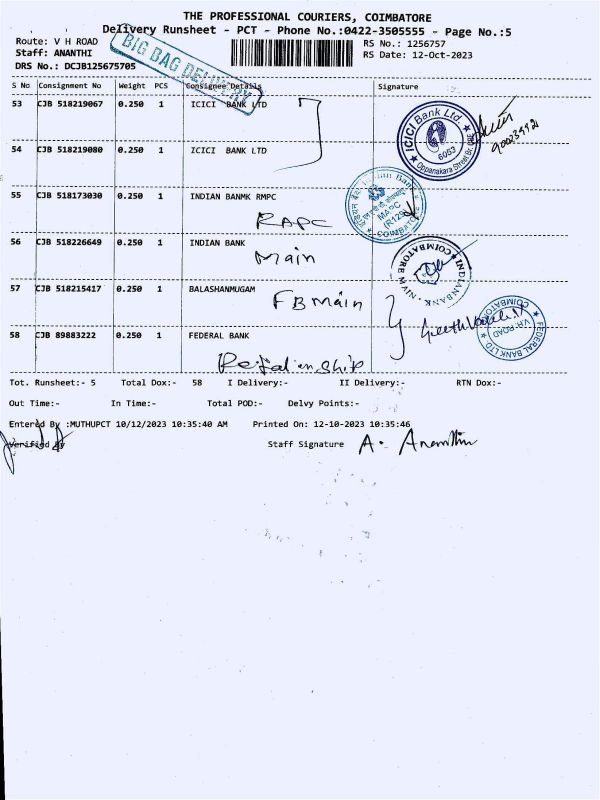 THE PROFESSIONAL COURIERS, COIMBATORE
Delivery Runsheet - PCT - Phone No.:0422-3505555 - Page No.:5
Route: V H ROAD
RS No.: 1256757
Staff: ANANTHI
RS Date: 12-Oct-2023
DRS No.: DCJB125675705
BIG BAG DELIVERY
S No Consignment No Weight PCS Consignee Details Signature
53 CJB 518219067 0.250 1 ICICI BANK LTD
ICICI Bank Ltd.
6053
Oppanakara Street Br, CBE
54 CJB 518219080 0.250 1 ICICI BANK LTD
55 CJB 518173030 0.250 1 INDIAN BANMK RMPC
RAPC
Indian Bank
MAPC
COIMBATORE
56 CJB 518226649 0.250 1 INDIAN BANK
Main
INDIAN BANK, COIMBATORE MAIN
57 CJB 518215417 0.250 1 BALASHANMUGAM
FB Main
58 CJB 89883222 0.250 1 FEDERAL BANK
FEDERAL BANK LTD
V.H. ROAD
COIMBATORE
Tot. Runsheet:- 5 Total Dox:- 58 I Delivery:- II Delivery:- RTN Dox:-
Out Time:- In Time:- Total POD:- Delvy Points:-
Entered By :MUTHUPCT 10/12/2023 10:35:40 AM Printed On: 12-10-2023 10:35:46
Verified By Staff Signature A. Ananthi